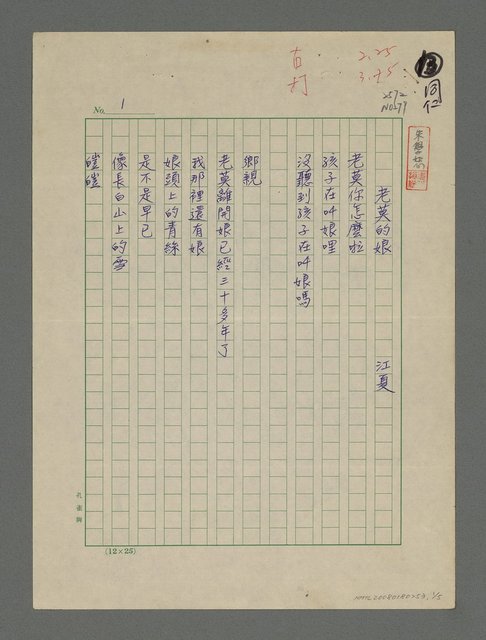 No. 1
2.25
3.25
同仁
2572
NO.77
老莫的娘 江夏
老莫你怎麼啦
孩子在叫娘哩
孩子在叫娘嗎
沒聽到孩子在叫娘嗎
鄉親
老莫離開娘已經三十多年了
我那裡還有娘
娘頭上的青絲
是不是早已
像長白山上的雪
皚皚
孔雀牌
(12×25)
NMTL20080180253, 1/5